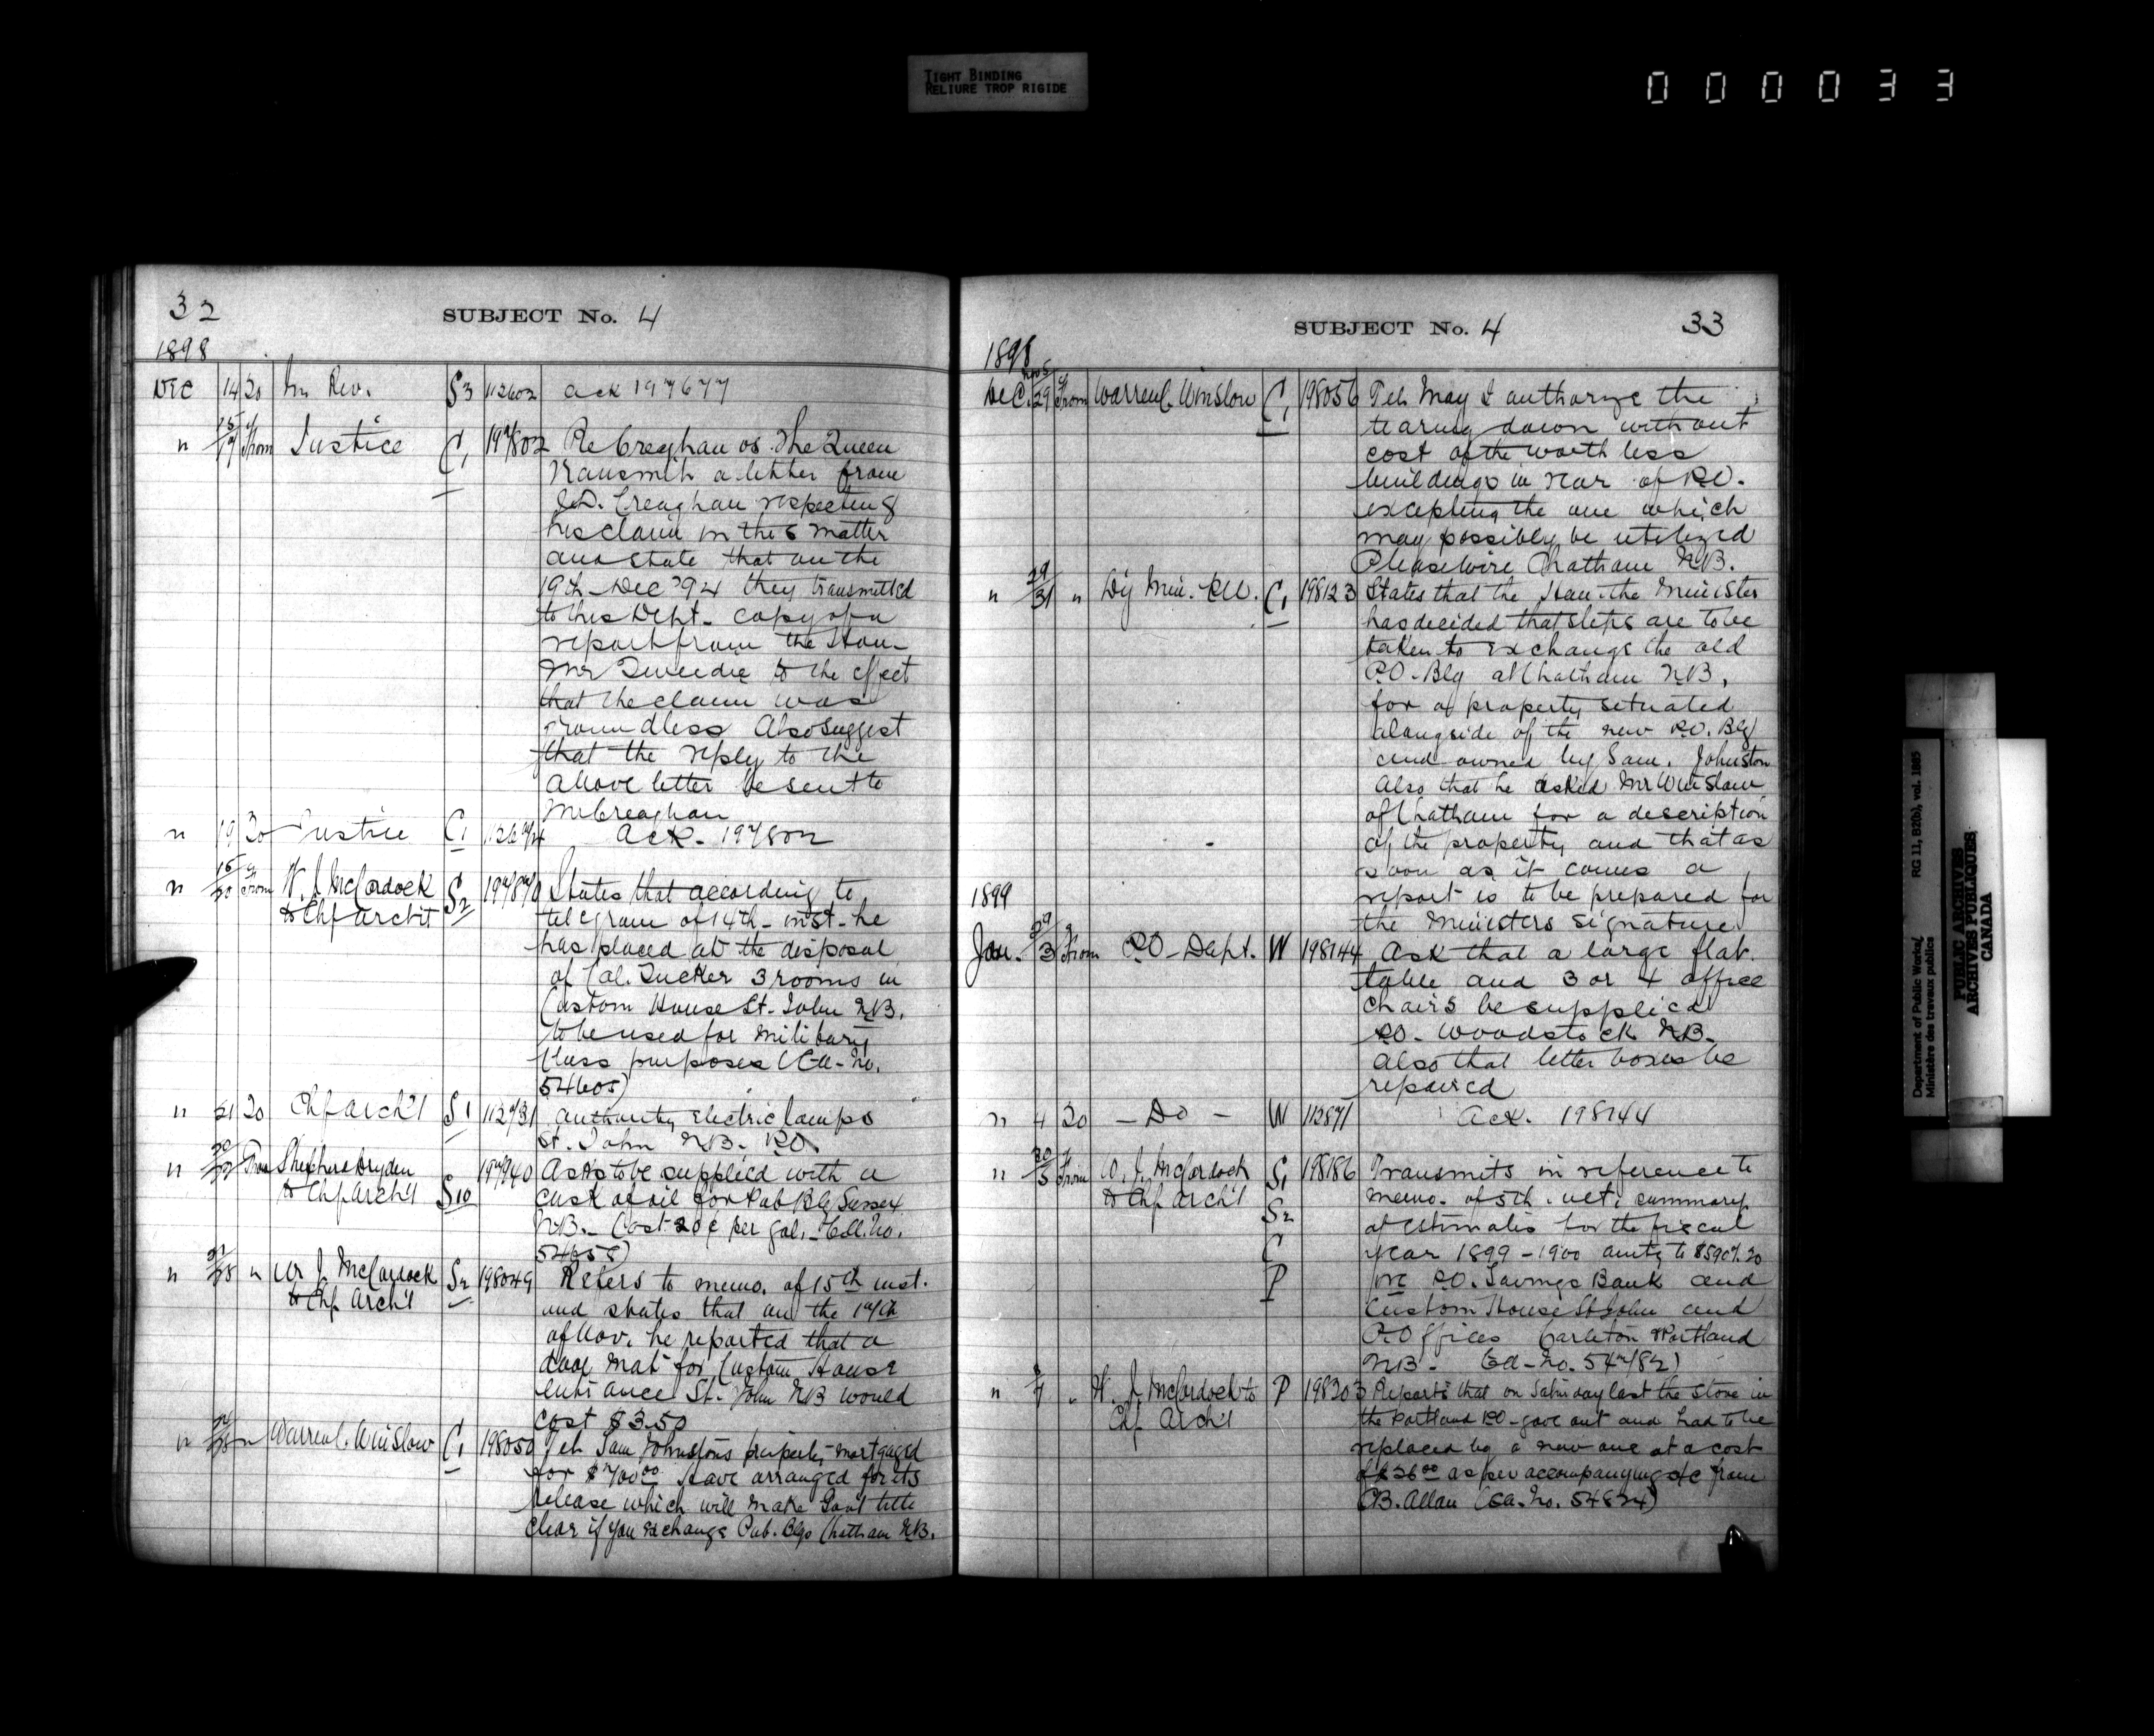 TIGHT BINDING
RELIURE TROP RIGIDE
000033
32
SUBJECT No. 4
1898
Dec 14 20 In Rev. S3 112602 ack 197677
" 15/17 From Justice C1 197802 Re Creaghan vs The Queen
Transmits a letter from
J.D. Creaghan respecting
his claim in this matter
and state that on the
19th Dec '94 they transmitted
to this Dept. copy of a
report from the Hon.
Mr Tweedie to the effect
that the claim was
groundless Also suggest
that the reply to the
above letter be sent to
Mr Creaghan
" 19 20 Justice C1 Ack. 197802
" From W. J. McCordock S2 197870 States that according to
to Chf Archit telegram of 14th inst. he
has placed at the disposal
of Col. Tucker 3 rooms in
Custom House St. John NB.
to be used for military
Class purposes (Ed. No.
54605)
" 21 20 Chf Arch't S1 112731 Authority electric lamps
St. John NB. PO.
" From Shepherd Dryden 197940 Asks to be supplied with a
to Chf Arch't S10 cask of oil for Pub Blg Sussex
NB. Cost 20¢ per gal. Ed. No.
54658)
" " W J. McCordock S2 198049 Refers to memo. of 15th inst.
to Chf Arch't and states that on the 17th
of Nov. he reported that a
door mat for Custom House
entrance St. John NB would
cost $3.50
" " Warren C. Winslow C1 198050 Tel. Sam Johnstons property mortgaged
for $700.00 Have arranged for its
release which will make Gov't title
clear if you exchange Pub. Blgs Chatham NB.
SUBJECT No. 4
33
1898
Dec. 29 From Warren C. Winslow C1 198056 Tel. May I authorize the
tearing down without
cost of the worthless
buildings in rear of P.O.
excepting the one which
may possibly be utilized
Please wire Chatham NB.
" 29/31 " Dy Min. P.W. C1 198123 States that the Hon. the Minister
has decided that steps are to be
taken to exchange the old
P.O. Blg at Chatham NB,
for a property situated
alongside of the new P.O. Blg
and owned by Sam. Johnston
Also that he asked Mr Winslow
of Chatham for a description
of the property and that as
soon as it comes a
report is to be prepared for
the Ministers signature
1899
Jan. 29/3 From P.O. Dept. W 198144 Ask that a large flat
table and 3 or 4 office
chairs be supplied
P.O. Woodstock NB.
Also that letter boxes be
repaired
" 4 20 — Do — W 112871 Ack. 198144
" 30/5 From W. J. McCordock S1 198186 Transmits in reference to
to Chf Arch't S2 memo. of 5th ult. summary
of estimates for the fiscal
year 1899-1900 amtg to $5907.20
C
P
for P.O. Savings Bank and
Custom House St John and
P. Offices Carleton & Portland
NB. Ed. No. 54782)
" " W. J. McCordock to P 198203 Reports that on Saturday last the stove in
Chf Arch't the Portland P.O. gave out and had to be
replaced by a new one at a cost
of $26.00 as per accompanying a/c from
C.B. Allan (Ed. No. 54824)
Department of Public Works/ RG 11, B2(b), vol. 1865
Ministère des travaux publics
PUBLIC ARCHIVES
ARCHIVES PUBLIQUES
CANADA